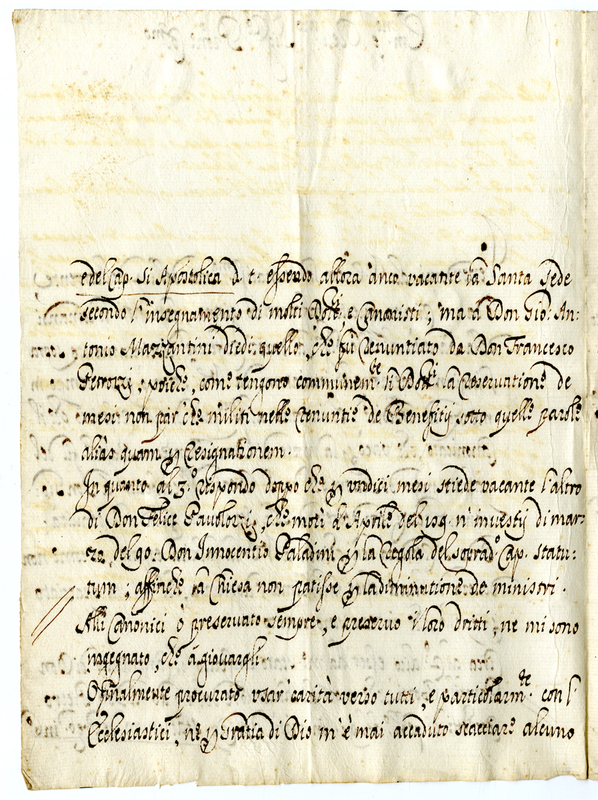 e del Cap. Si Apostolica d. t. essendo allora anco vacante la Santa Sede
secondo l'insegnamento di molti Dott. e Canonisti; ma a Don Gio: An:
tonio Mazzantini diedi quello, che fù renuntiato da Don Francesco
Petrozzi, poiche, come tengono communem.te li Dott. la reservatione de
mesi non par che militi nelle renuntie de Beneficij sotto quelle parole
alias quam per resignationem.
In quanto al 3.o rispondo doppo che per undici mesi stiede vacante l'altro
di Don Felice Pauolozzi, che morì d'Aprile del n'investij di mar:
zo, del 90. Don Innocentio Paladini per la Regola del soprad.o Cap. statu:
tum; affinche la Chiesa non patisse per la diminutione de ministri.
Alli Canonici ò preservato sempre, e preservo i loro dritti, ne mi sono
ingegnato, che a giovargli.
O finalmente procurato usar carità verso tutti, e particolarm.te con l'
Ecclesiastici, nè per gratia di Dio m'è mai accaduto scacciare alcuno